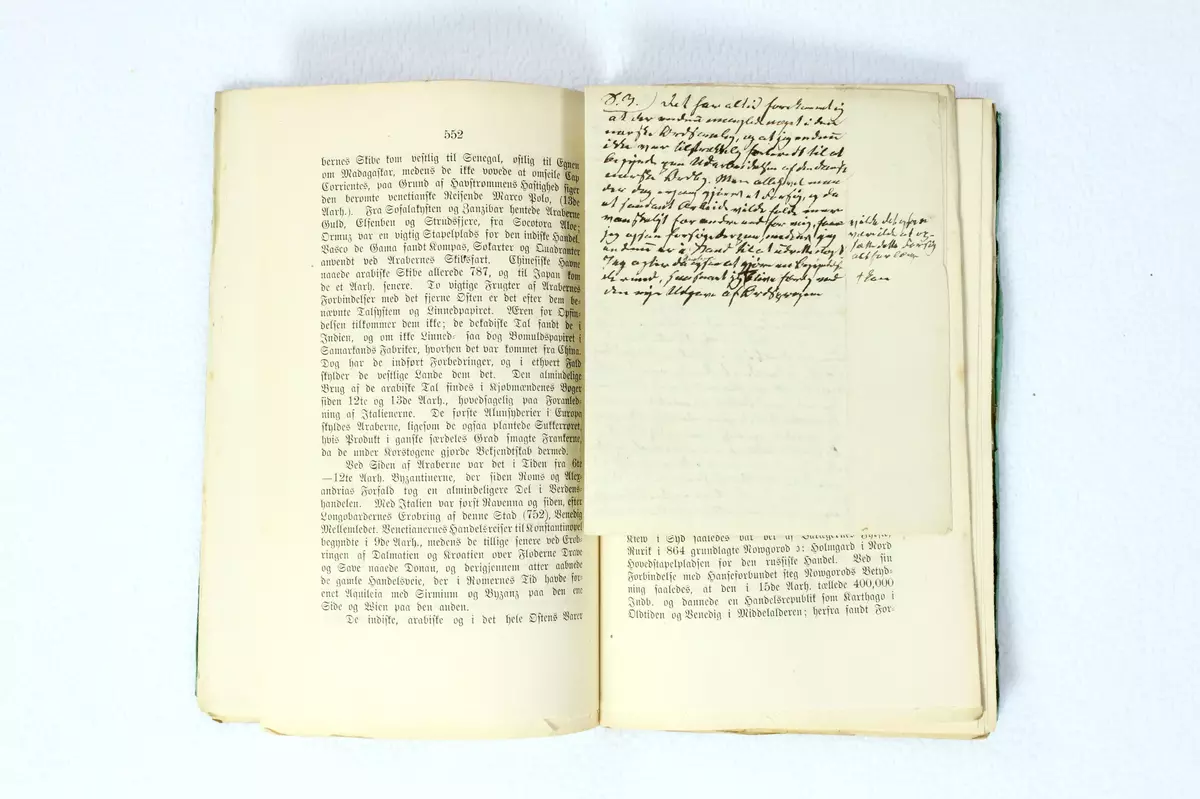 552
bernes Skibe kom vestlig til Senegal, østlig til Egnen
om Madagaskar, medens de ikke vovede at omseile Cap
Corrientes, paa Grund af Havstrømmens Hastighed siger
den berømte venetianske Reisende Marco Polo, (13de
Aarh.). Fra Sofalakysten og Zanzibar hentede Araberne
Guld, Elfenben og Strudsfjere, fra Socotora Aloe;
Ormuz var en vigtig Stapelplads for den indiske Handel.
Vasco de Gama fandt Kompas, Søkarter og Quadranter
anvendt ved Arabernes Skibsfart. Chinesiske Havne
naaede arabiske Skibe allerede 787, og til Japan kom
de et Aarh. senere. To vigtige Frugter af Arabernes
Forbindelser med det fjerne Østen er det efter dem be-
nævnte Talsystem og Linnedpapiret. Æren for Opfin-
delsen tilkommer dem ikke; de dekadiske Tal fandt de i
Indien, og om ikke Linned- saa dog Bomuldspapiret i
Samarkands Fabriker, hvorhen det var kommet fra China.
Dog har de indført Forbedringer, og i ethvert Fald
skylder de vestlige Lande dem det. Den almindelige
Brug af de arabiske Tal findes i Kjøbmændenes Bøger
siden 12te og 13de Aarh., hovedsagelig paa Foranled-
ning af Italienerne. De første Alunsyderier i Europa
skyldes Araberne, ligesom de ogsaa plantede Sukkerrøret,
hvis Produkt i ganske særdeles Grad smagte Frankerne,
da de under Korstogene gjorde Bekjendtskab dermed.
Ved Siden af Araberne var det i Tiden fra 6te
—12te Aarh. Byzantinerne, der siden Roms og Alex-
andrias Forfald tog en almindeligere Del i Verdens-
handelen. Med Italien var først Ravenna og siden, efter
Longobardernes Erobring af denne Stad (752), Venedig
Mellemledet. Venetianernes Handelsreiser til Konstantinopel
begyndte i 9de Aarh., medens de tillige senere ved Erob-
ringen af Dalmatien og Kroatien over Floderne Drave
og Save naaede Donau, og derigjennem atter aabnede
de gamle Handelsveie, der i Romernes Tid havde for-
enet Aquileia med Sirmium og Byzanz paa den ene
Side og Wien paa den anden.
De indiske, arabiske og i det hele Østens Varer
Det har altid forekommet mig
at der endnu manglede noget i den
norske Ordsamling, og at jeg endnu
ikke var tilstrækkelig forberedt til at
begynde paa Udarbeidelsen af den dansk
norske Ordbog. Men alligevel maa
der dog engang gjøres et Forsøg, og da
et saadant Arbeide vilde falde mere
vanskeligt for andre end for mig, saa
jeg
endnu er i Stand til at udrette noget
Jeg agter derfor at gjøre en Begyndelse
dermed, saasnart jeg bliver færdig med
den nye Udgave af Ordsprogene
vilde det
være ilde at op-
sætte dette Forsøg
altfor længe
Kiew i Syd saaledes var det af
Rurik i 864 grundlagte Nowgorod ɔ: Holmgard i Nord
Hovedstapelpladsen for den russiske Handel. Ved sin
Forbindelse med Hanseforbundet steg Nowgorods Betyd-
ning saaledes, at den i 15de Aarh. tællede 400,000
Indb. og dannede en Handelsrepublik som Karthago i
Oldtiden og Venedig i Middelalderen; herfra fandt For-